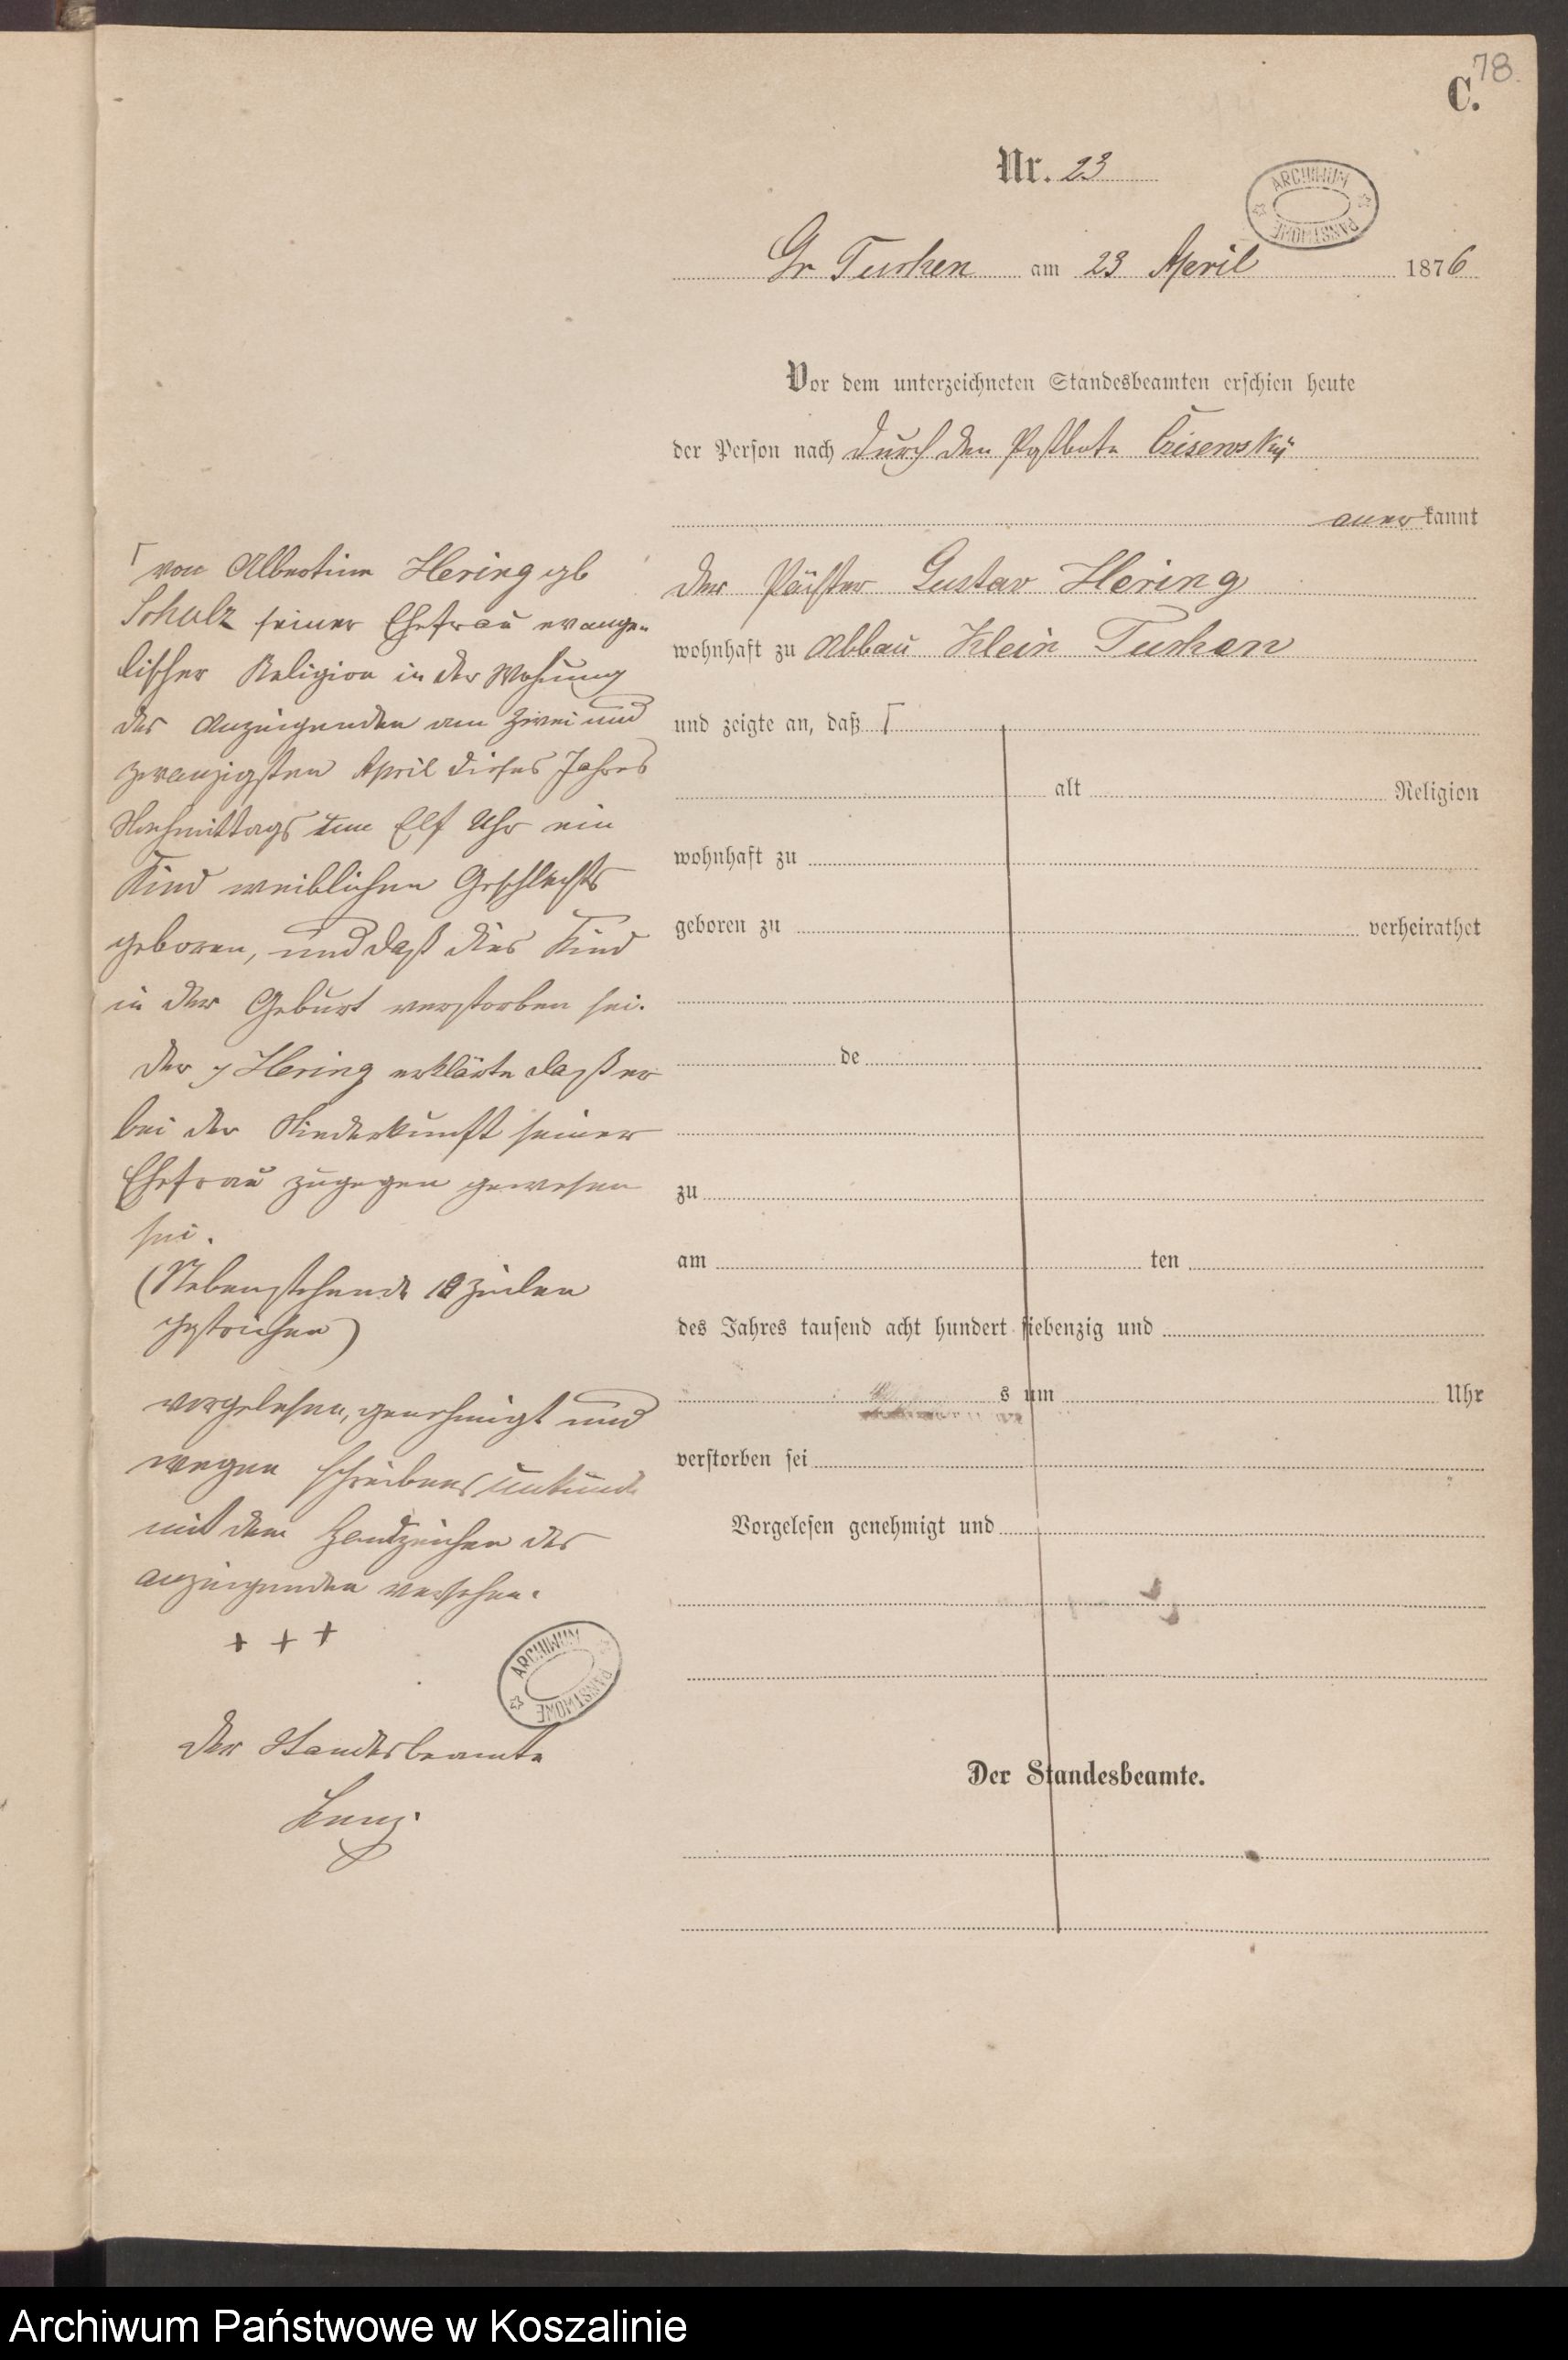 78.
C.
Nr. 23
ARCHIWUM PAŃSTWOWE
Gr Tuchen am 23 April 1876
Vor dem unterzeichneten Standesbeamten erschien heute
der Person nach durch den Postbote Czisewski
anerkannt
der Pächter Gustav Hering
wohnhaft zu Abbau Klein Tuchen
und zeigte an, daß Γ
alt Religion
wohnhaft zu
geboren zu verheirathet
de
zu
am ten
des Jahres tausend acht hundert siebenzig und
s um Uhr
verstorben sei
Vorgelesen genehmigt und
Der Standesbeamte.
Γ von Albertine Hering gb
Scholz seiner Ehefrau evange-
lischer Religion in der Wohnung
des Anzeigenden am zwei und
zwanzigsten April dieses Jahres
um Elf Uhr ein
Kind weiblichen Geschlechts
geboren, und daß dies Kind
in der Geburt verstorben sei.
Der p Hering erklärte daß er
bei der Niederkunft seiner
Ehefrau zugegen gewesen
sei.
(Nebenstehende Zeilen
gestrichen)
vorgelesen, genehmigt und
wegen Schreibens unkunde
mit dem Handzeichen des
anzeigenden versehen.
+ + +
ARCHIWUM PAŃSTWOWE
Der Standesbeamte
Archiwum Państwowe w Koszalinie